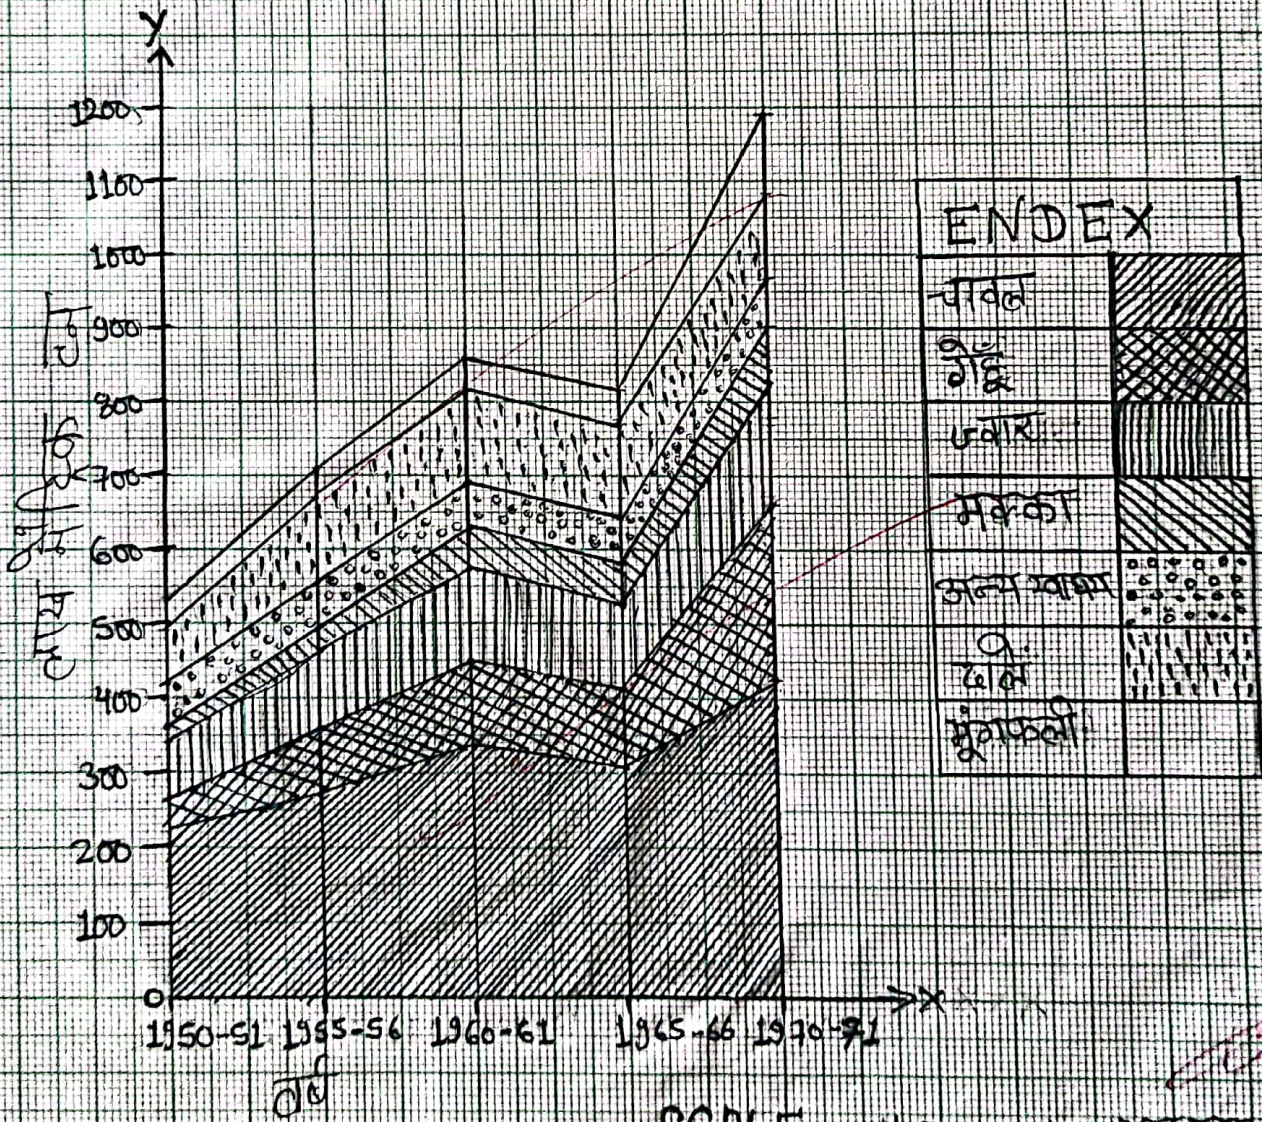 Y
1200
1100
1000
900
800
700
600
500
400
300
200
100
0
1950-51 1955-56 1960-61 1965-66 1970-71
X
वर्ष
ENDEX
चावल
गेहूँ
ज्वार
मक्का
अन्य खाद्य
दाल
मूंगफली